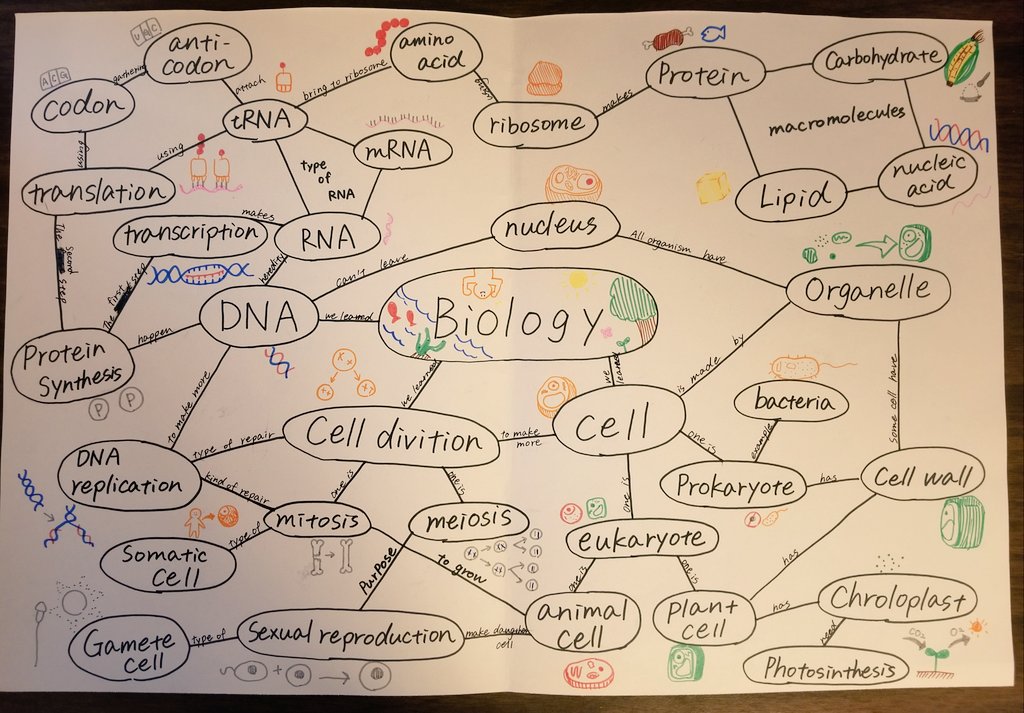 UAC
anti-
codon
gathering
ACG
codon
attach
amino
acid
bring to ribosome
tRNA
using
translation
mRNA
type
of
RNA
ribosome
makes
Protein
Carbohydrate
macromolecules
nucleic
acid
Lipid
transcription
makes
RNA
nucleus
All organism have
can't leave
heredity
The second step
The first step
DNA
we learned
Biology
Organelle
Protein
Synthesis
happen
P P
to make more
X+
++ ++
we learned
we learned
is made by
some cell have
Cell divition
to make
more
Cell
bacteria
example
one is
Prokaryote
has
Cell wall
DNA
replication
type of repair
kind of repair
one is
one is
one is
mitosis
meiosis
eukaryote
Somatic
Cell
type of
Purpose
to grow
one is
one is
has
animal
cell
plant
cell
has
Chroloplast
need
CO₂ O₂
Photosinthesis
Gamete
cell
type of
Sexual reproduction
make daughter
cell